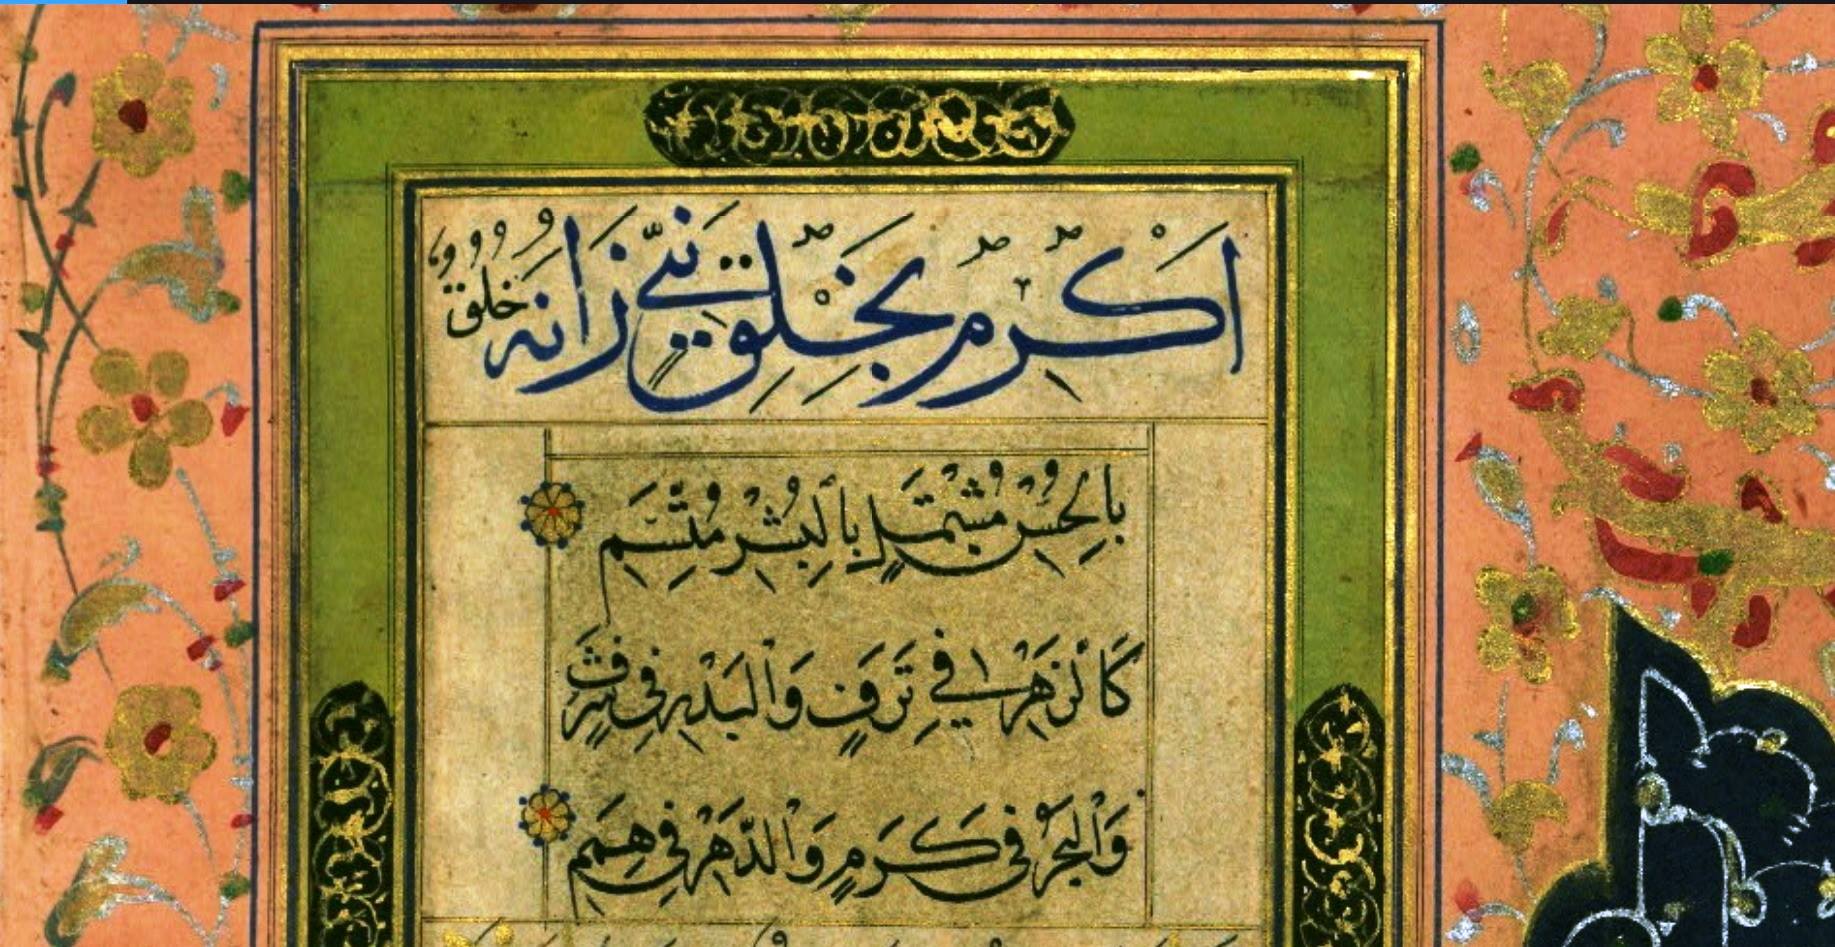 اَكْرِمْ بِخَلْقِ نَبِيٍّ زَانَهُ خُلُقٌ
بِالْحُسْنِ مُشْتَمِلٍ بِالْبِشْرِ مُتَّسِمِ
كَالزَّهْرِ فِي تَرَفٍ وَالْبَدْرِ فِي شَرَفٍ
وَالْبَحْرِ فِي كَرَمٍ وَالدَّهْرِ فِي هِمَمِ